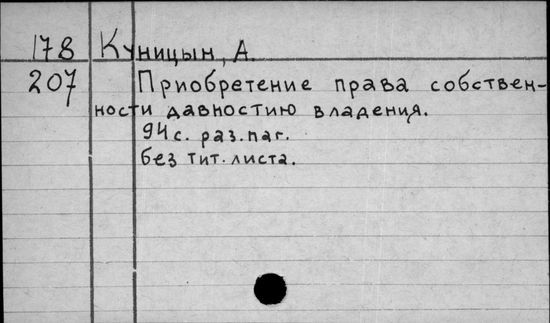 178 Куницын, А.
207 Приобретение права собствен-
ности давностию владения.
94 с. раз. паг.
без тит. листа.